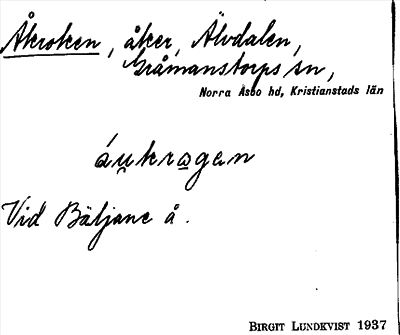 Åkroken, åker, Älvdalen,
Gråmanstorps sn,
Norra Åsbo hd, Kristianstads län
áu̯krǫgen
Vid Bäljane å.
BIRGIT LUNDKVIST 1937